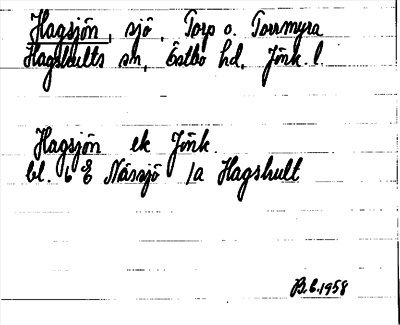 Hagsjön, sjö, Torp o. Torrmyra
Hagshults sn, Östbo hd, Jönk. l.
Hagsjön ek Jönk.
bl. 6 E Nässjö 1a Hagshult
B.E.1958